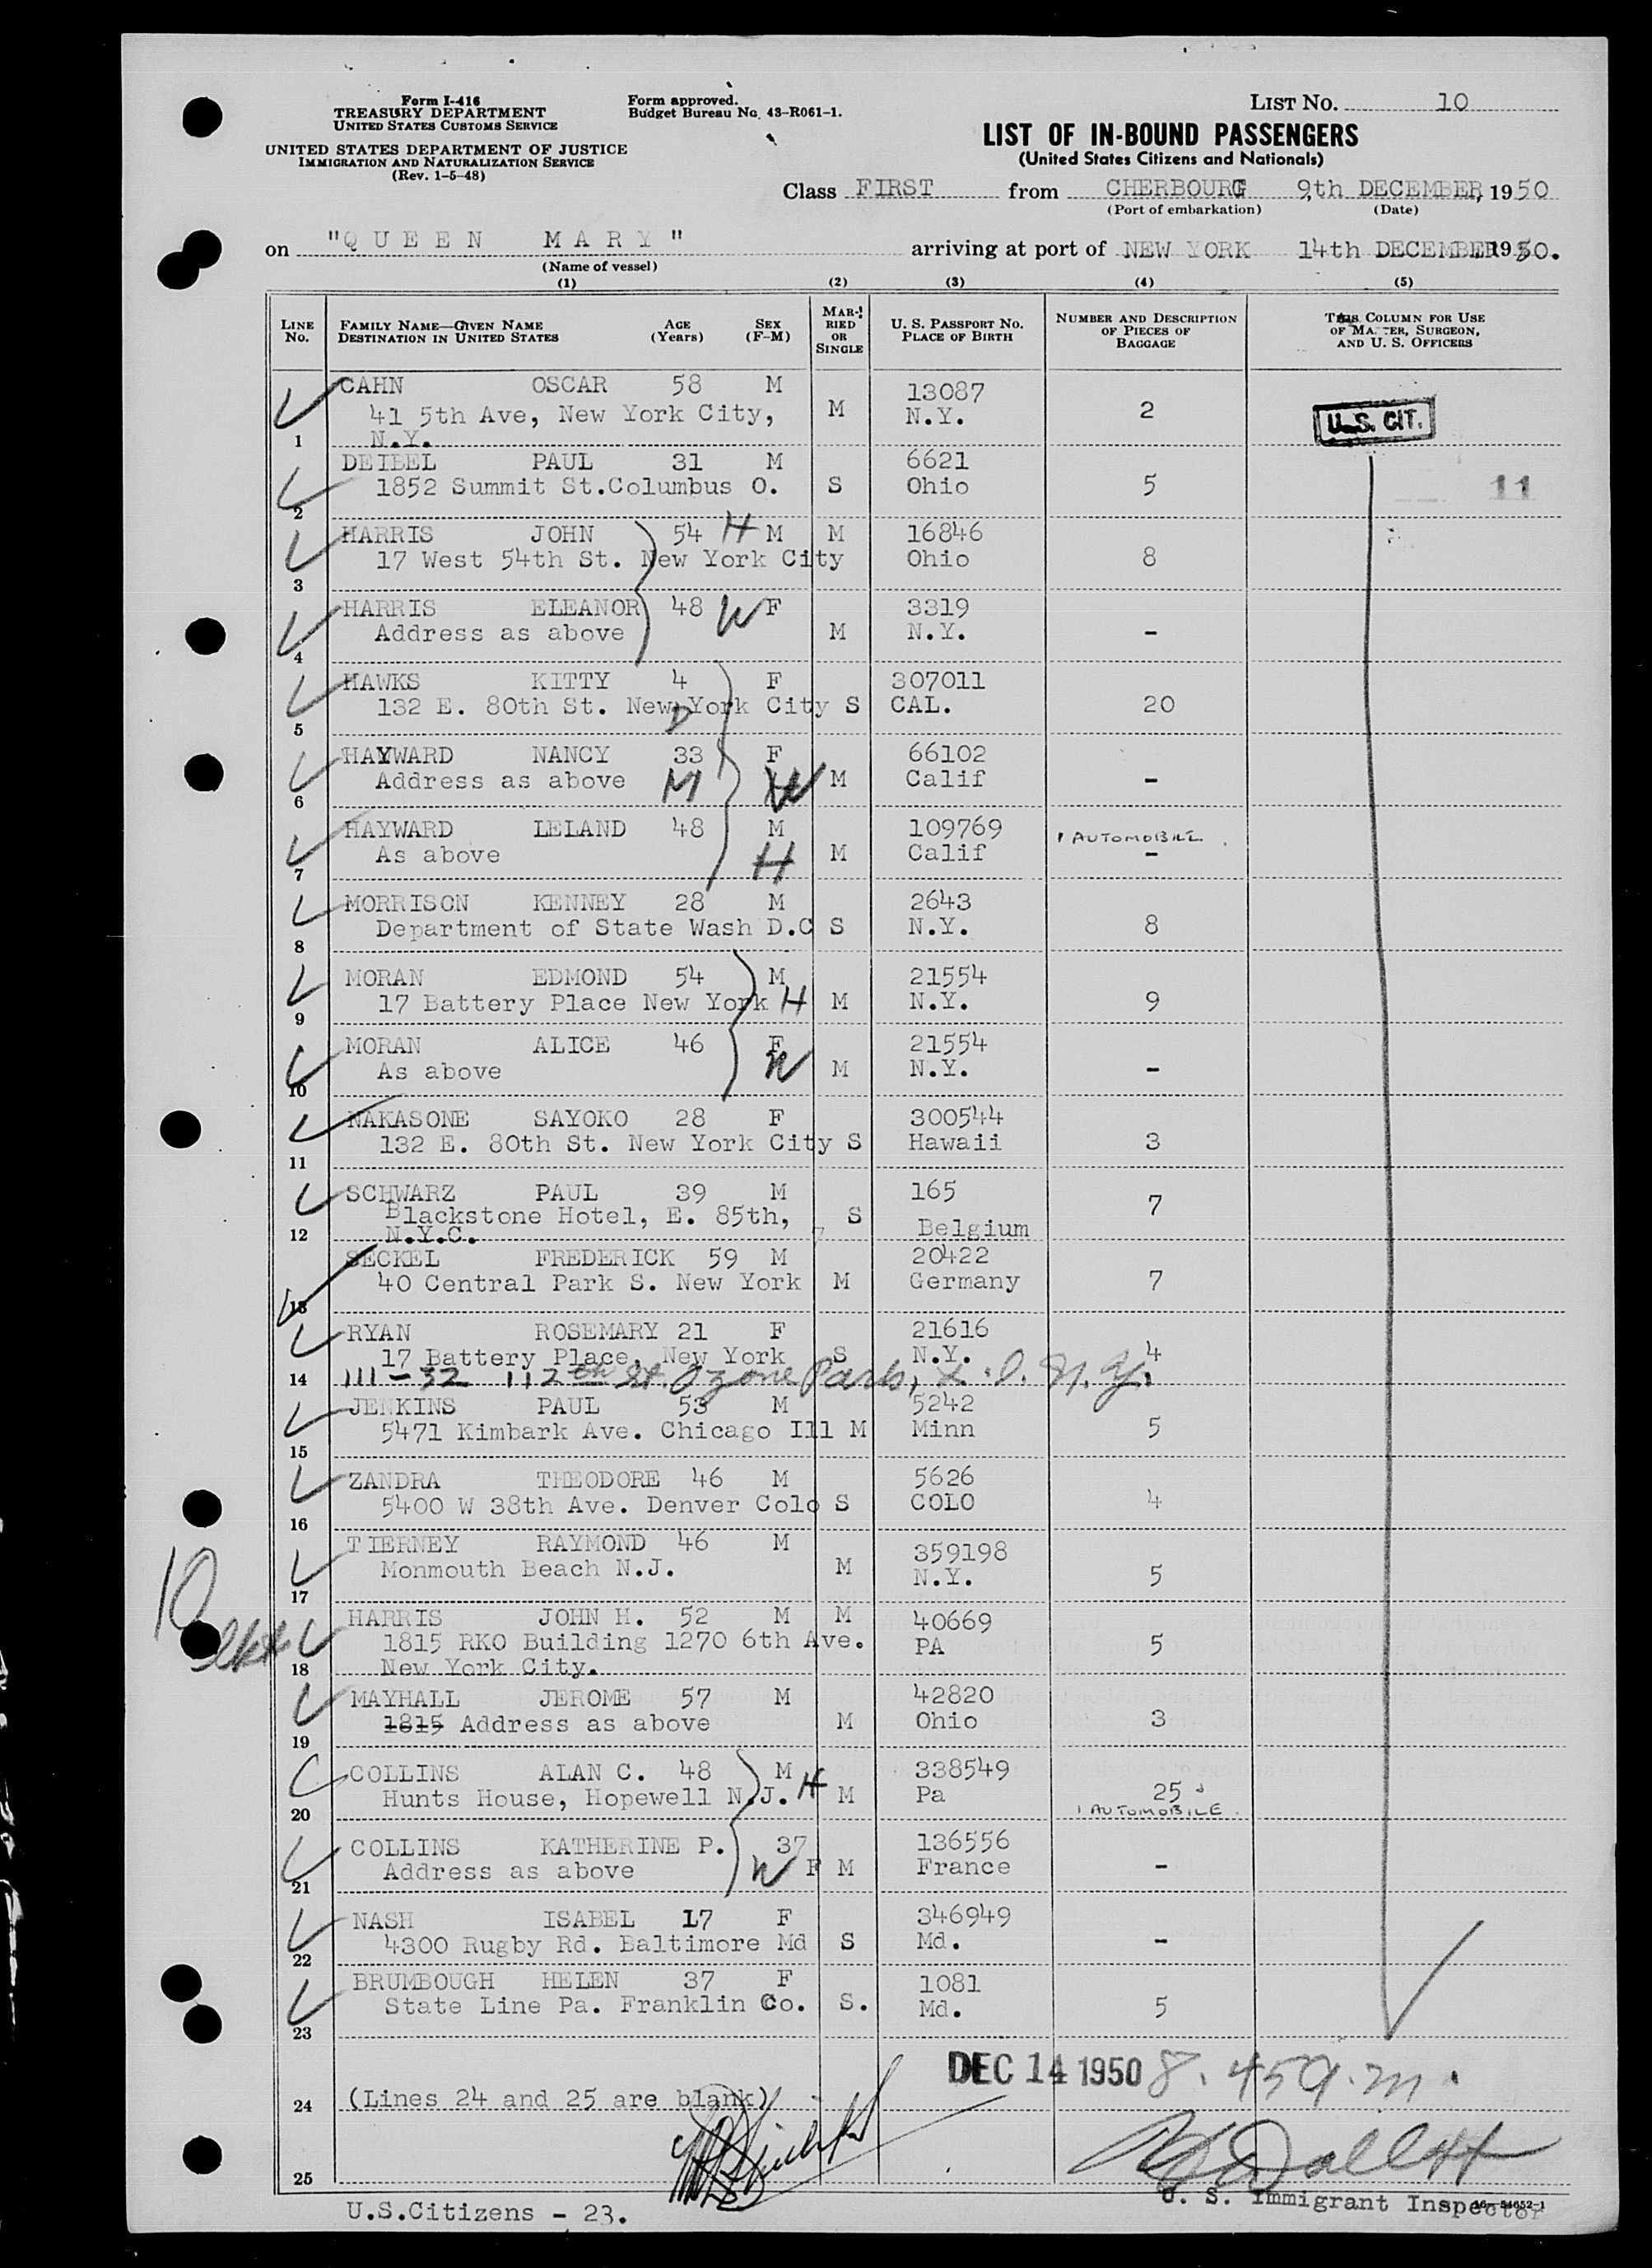 Form I-416
TREASURY DEPARTMENT
UNITED STATES CUSTOMS SERVICE
UNITED STATES DEPARTMENT OF JUSTICE
IMMIGRATION AND NATURALIZATION SERVICE
(Rev. 1-5-48)
Form approved.
Budget Bureau No. 43-R061-1.
LIST NO. 10
LIST OF IN-BOUND PASSENGERS
(United States Citizens and Nationals)
Class FIRST from CHERBOURG 9th DECEMBER, 1950
(Port of embarkation) (Date)
on "QUEEN MARY" arriving at port of NEW YORK 14th DECEMBER 1950.
(Name of vessel)
(1) (2) (3) (4) (5)
LINE NO. FAMILY NAME—GIVEN NAME DESTINATION IN UNITED STATES AGE (Years) SEX (F-M) MARRIED OR SINGLE U. S. PASSPORT NO. PLACE OF BIRTH NUMBER AND DESCRIPTION OF PIECES OF BAGGAGE THIS COLUMN FOR USE OF MASTER, SURGEON, AND U. S. OFFICERS
CAHN OSCAR 58 M 13087
41 5th Ave, New York City, M N.Y. 2 U.S. CIT.
1 N.Y.
DEIBEL PAUL 31 M 6621
1852 Summit St.Columbus O. S Ohio 5 11
2
HARRIS JOHN 54 H M M 16846
17 West 54th St. New York City Ohio 8
3
HARRIS ELEANOR 48 W F 3319
Address as above M N.Y. -
4
HAWKS KITTY 4 F 307011
132 E. 80th St. New York City S CAL. 20
5 D
HAYWARD NANCY 33 F 66102
Address as above M W M Calif -
6
HAYWARD LELAND 48 M 109769 1 AUTOMOBILE
As above H M Calif -
7
MORRISON KENNEY 28 M 2643
Department of State Wash D.C S N.Y. 8
8
MORAN EDMOND 54 M 21554
17 Battery Place New York H M N.Y. 9
9
MORAN ALICE 46 F 21554
As above W M N.Y. -
10
NAKASONE SAYOKO 28 F 300544
132 E. 80th St. New York City S Hawaii 3
11
SCHWARZ PAUL 39 M 165
Blackstone Hotel, E. 85th, S Belgium 7
12 N.Y.C.
SECKEL FREDERICK 59 M 20422
40 Central Park S. New York M Germany 7
13
RYAN ROSEMARY 21 F 21616
17 Battery Place, New York S N.Y. 4
14 111-32 112th St. Ozone Park, L.I. N.Y.
JENKINS PAUL 53 M 5242
5471 Kimbark Ave. Chicago Ill M Minn 5
15
ZANDRA THEODORE 46 M 5626
5400 W 38th Ave. Denver Colo S COLO 4
16
TIERNEY RAYMOND 46 M 359198
Monmouth Beach N.J. M N.Y. 5
17
10
HARRIS JOHN H. 52 M M 40669
1815 RKO Building 1270 6th Ave. PA 5
18 New York City.
MAYHALL JEROME 57 M 42820
1815 Address as above M Ohio 3
19
COLLINS ALAN C. 48 M 338549
Hunts House, Hopewell N.J. H M Pa 25
20 1 AUTOMOBILE
COLLINS KATHERINE P. 37 136556
Address as above W F M France -
21
NASH ISABEL 17 F 346949
4300 Rugby Rd. Baltimore Md S Md. -
22
BRUMBOUGH HELEN 37 F 1081
State Line Pa. Franklin Co. S. Md. 5
23
DEC 14 1950 8.45 a.m.
24 (Lines 24 and 25 are blank)
25
U. S. Immigrant Inspector
16-54652-1
U.S.Citizens - 23.